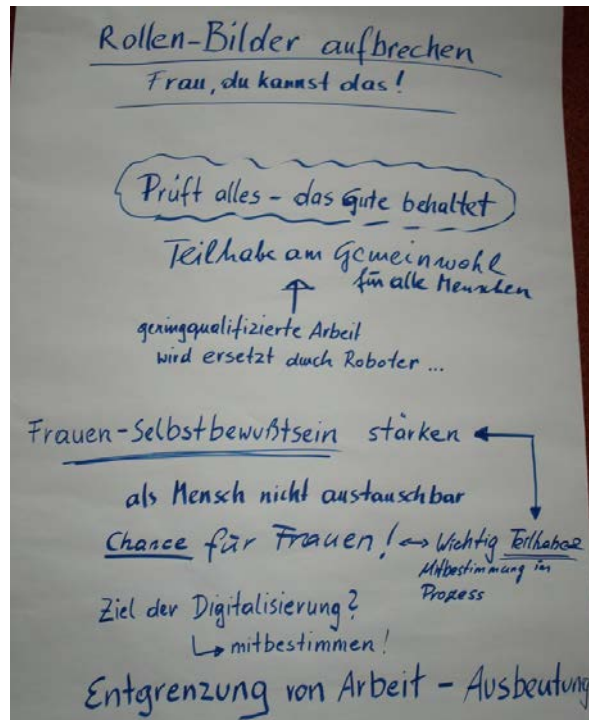 Rollen-Bilder aufbrechen
Frau, du kannst das!
Prüft alles – das Gute behaltet
Teilhabe am Gemeinwohl
für alle Menschen
↑
geringqualifizierte Arbeit
wird ersetzt durch Roboter ...
Frauen-Selbstbewußtsein stärken
als Mensch nicht austauschbar
Chance für Frauen! ↔ Wichtig Teilhabe
Mitbestimmung im
Prozess
Ziel der Digitalisierung?
↳ mitbestimmen!
Entgrenzung von Arbeit – Ausbeutung